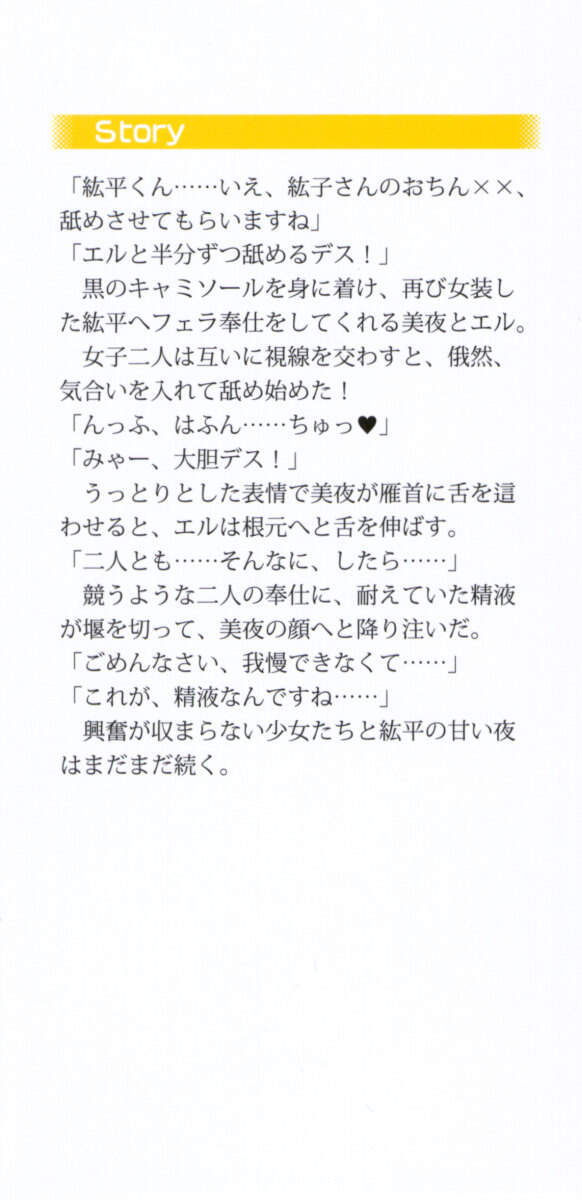 Story
「紘平くん……いえ、紘子さんのおちん××、
舐めさせてもらいますね」
「エルと半分ずつ舐めるデス！」
　黒のキャミソールを身に着け、再び女装し
た紘平へフェラ奉仕をしてくれる美夜とエル。
　女子二人は互いに視線を交わすと、俄然、
気合いを入れて舐め始めた！
「んっふ、はふん……ちゅっ♥」
「みゃー、大胆デス！」
　うっとりとした表情で美夜が雁首に舌を這
わせると、エルは根元へと舌を伸ばす。
「二人とも……そんなに、したら……」
　競うような二人の奉仕に、耐えていた精液
が堰を切って、美夜の顔へと降り注いだ。
「ごめんなさい、我慢できなくて……」
「これが、精液なんですね……」
　興奮が収まらない少女たちと紘平の甘い夜
はまだまだ続く。